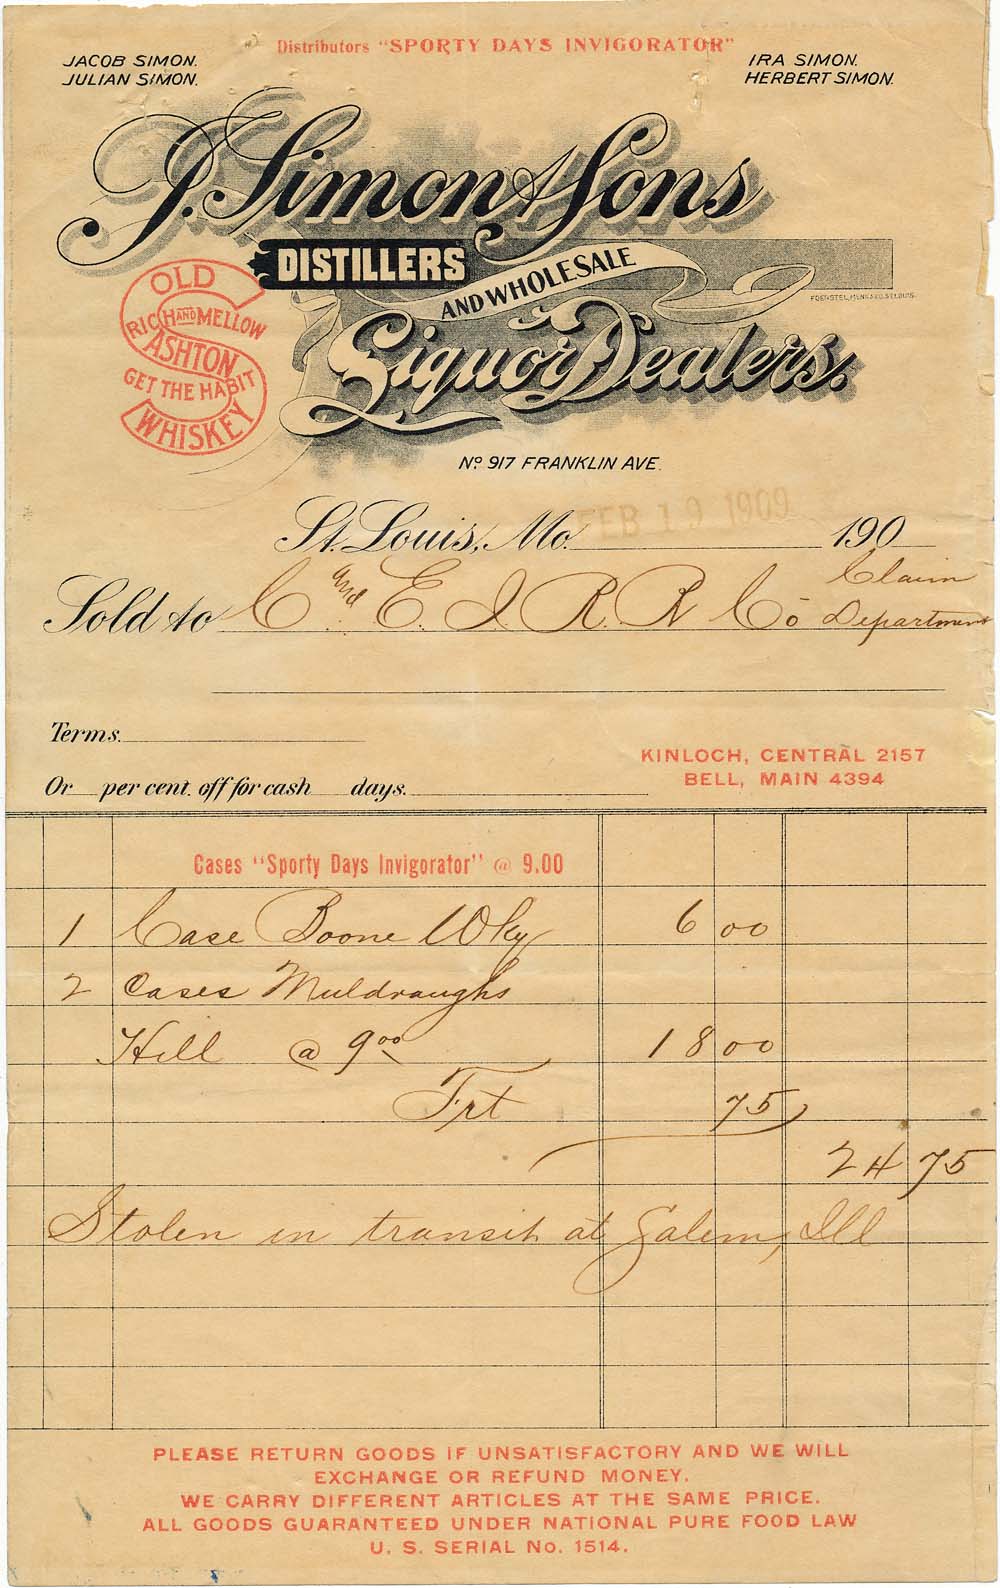 Distributors "SPORTY DAYS INVIGORATOR"
JACOB SIMON.
JULIAN SIMON.
IRA SIMON.
HERBERT SIMON.
J. Simon & Sons
DISTILLERS
AND WHOLESALE
Liquor Dealers.
OLD
RICH AND MELLOW
ASHTON
GET THE HABIT
WHISKEY
No 917 FRANKLIN AVE.
St. Louis, Mo. FEB 19 1909 190
Sold to C and E. I. R. R. Co Claim
Department
Terms.
KINLOCH, CENTRAL 2157
BELL, MAIN 4394
Or per cent. off for cash days.
Cases "Sporty Days Invigorator" @ 9.00
1 Case Boone Wky 6 00
2 Cases Muldraughs
Hill @ 9 00 18 00
Frt 75
24 75
Stolen in transit at Salem, Ill
PLEASE RETURN GOODS IF UNSATISFACTORY AND WE WILL
EXCHANGE OR REFUND MONEY.
WE CARRY DIFFERENT ARTICLES AT THE SAME PRICE.
ALL GOODS GUARANTEED UNDER NATIONAL PURE FOOD LAW
U. S. SERIAL No. 1514.